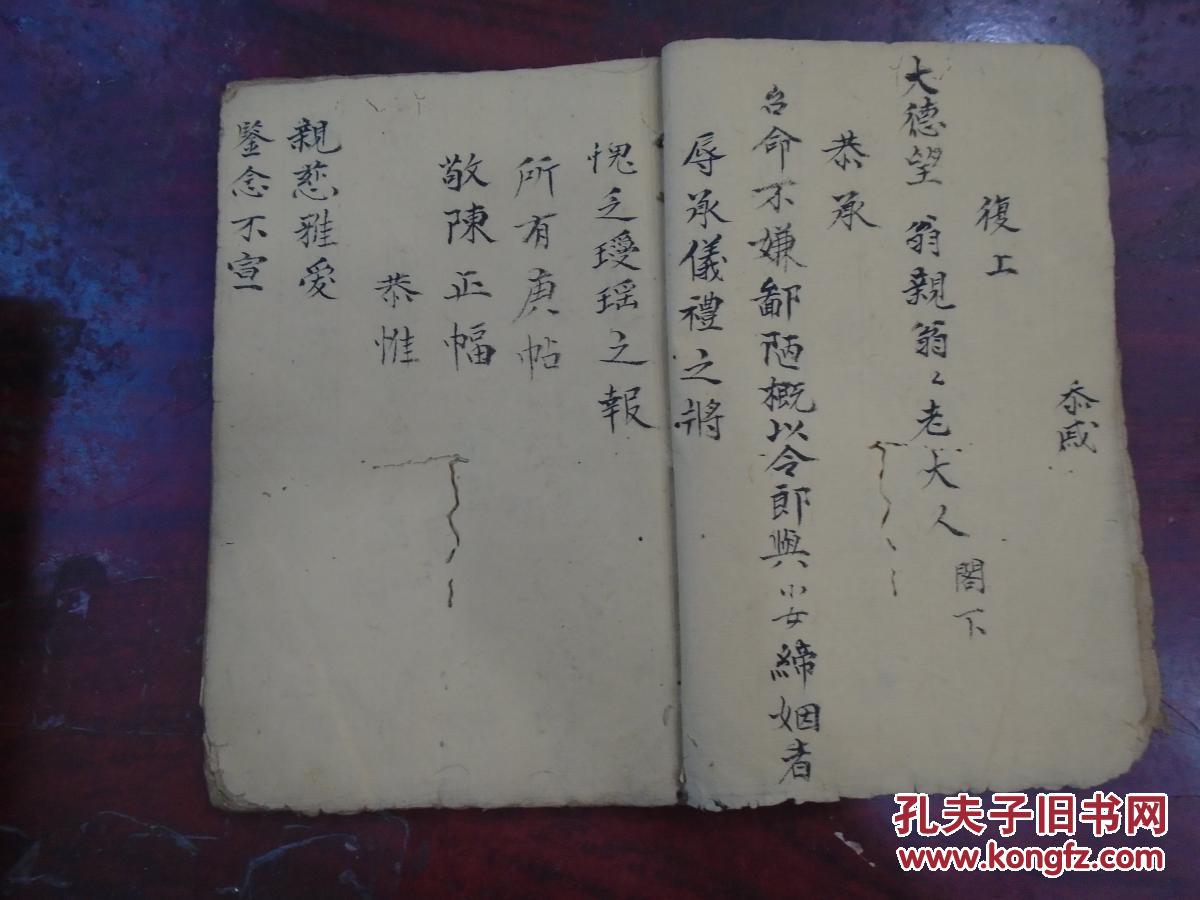 忝戚
復上
大德望 翁親翁〻老大人 閣下
恭承
台命不嫌鄙陋概以令郎與小女締姻者
辱承儀禮之將
愧乏瓊瑶之報
所有庚帖
敬陳正幅
恭惟
親慈雅愛
鑒念不宣
孔夫子旧书网
www.kongfz.com